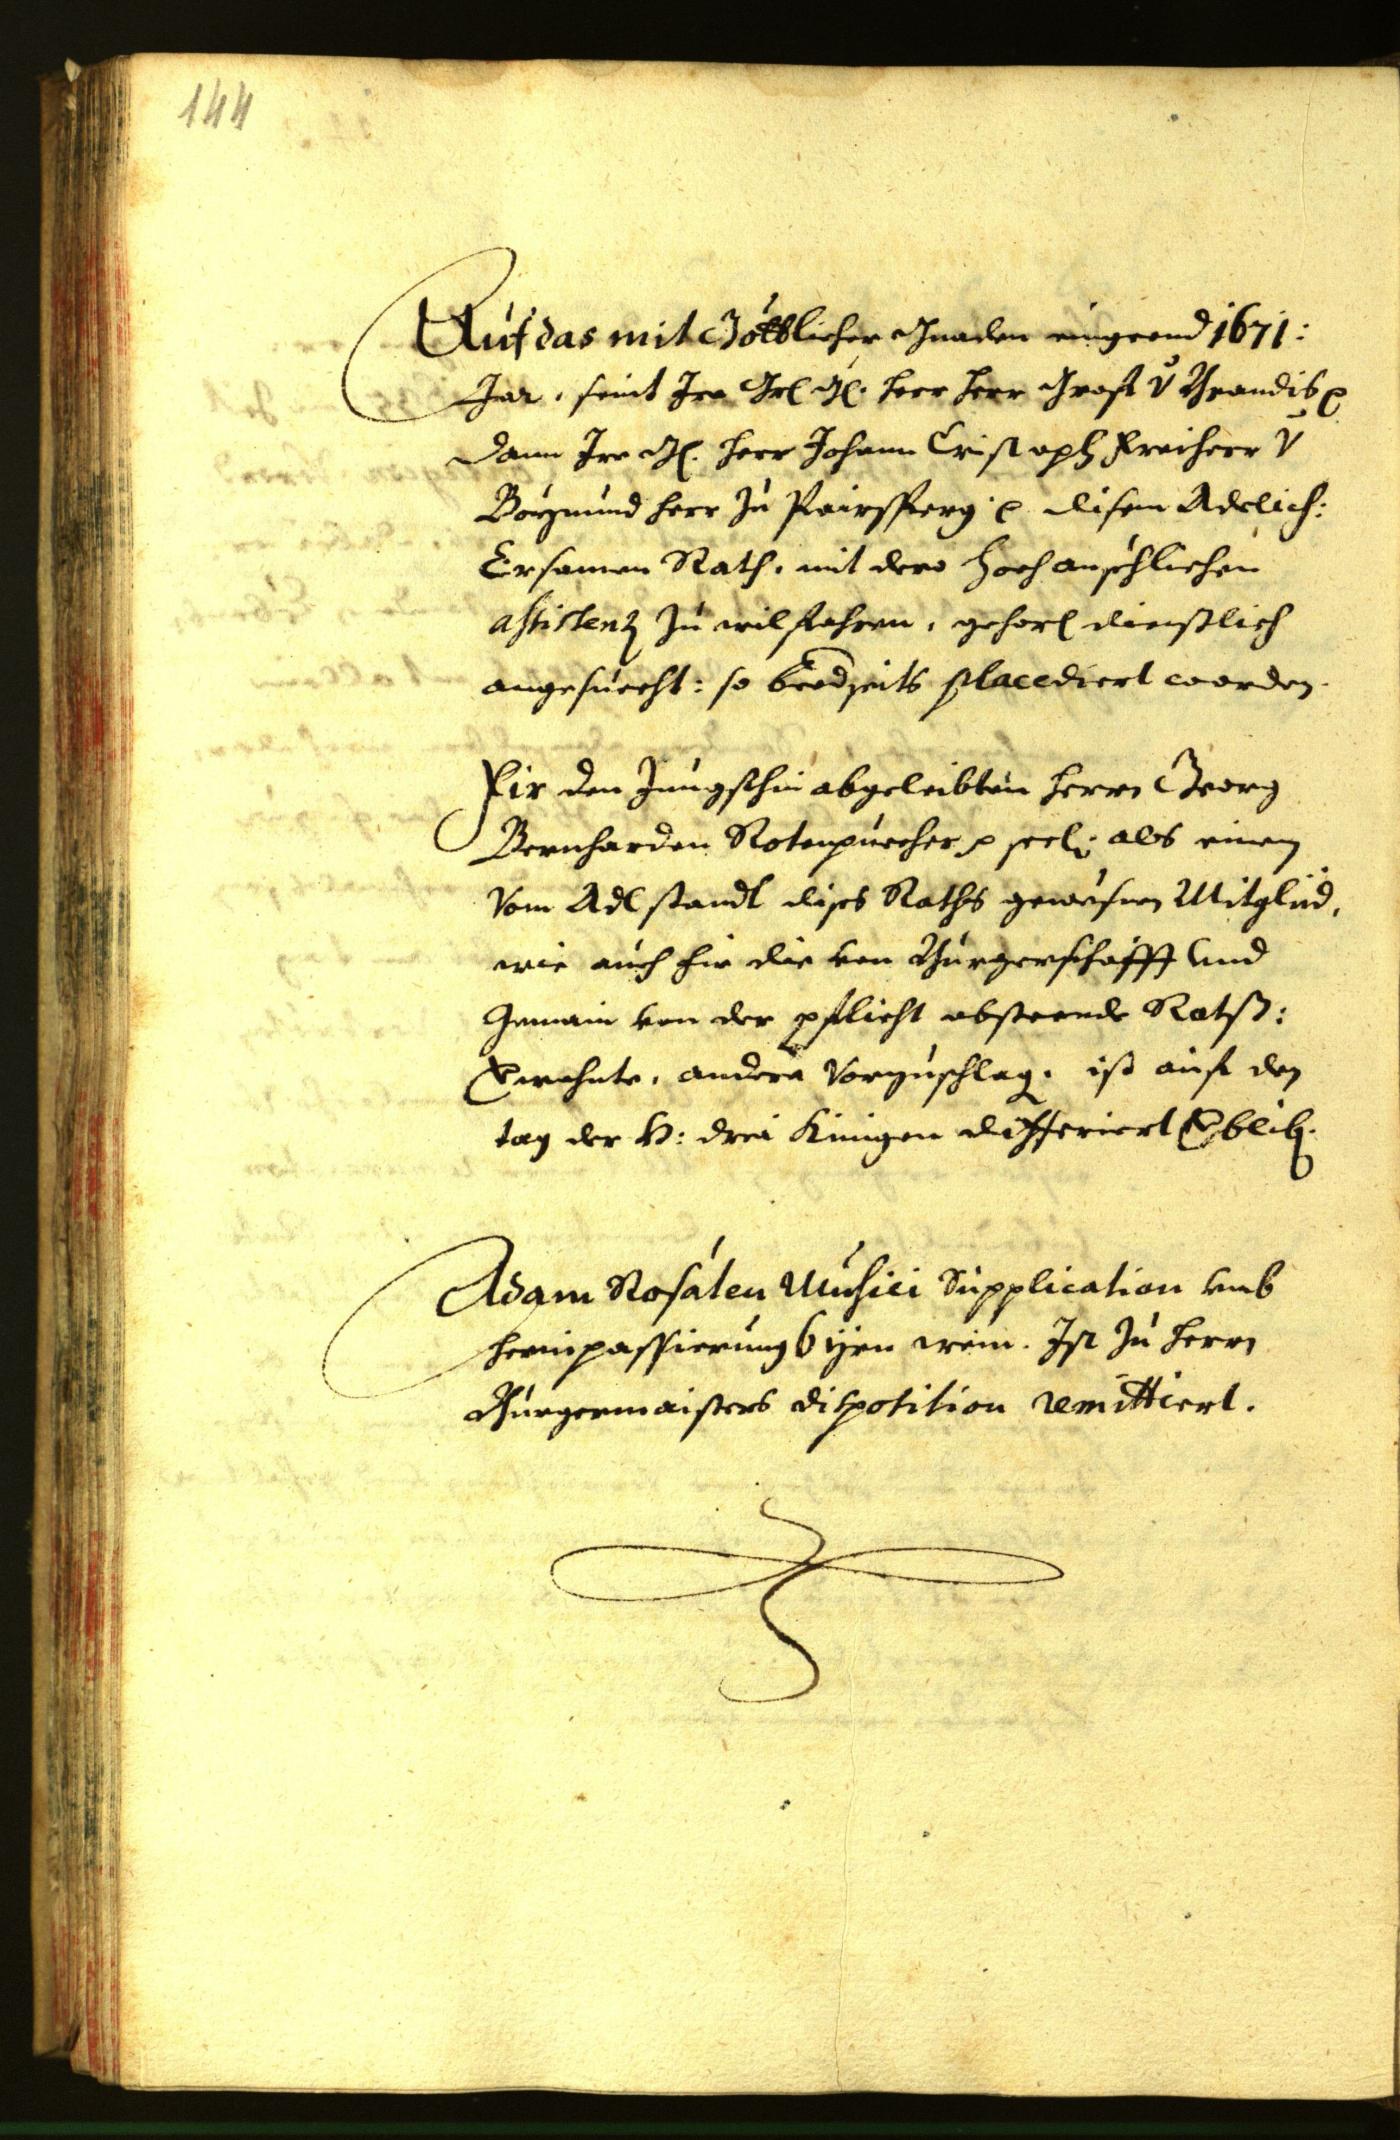 144
Auf das mit Göttlicher Gnaden eingeend 1671:
Jar, seint Ire Grl. Gl. herr herr Graff v Brandis p
dann Ire Gl. herr Johann Cristoph Freiherr v
Boymund herr zu Pairsperg p disem Adelich:
Ersamen Rath, mit dero hochansehlichen
assistenz zu wilfahren, gehorl dienstlich
angesuecht: so beedseits placediert worden.
Fir den Jungsthin abgeleibten herrn Georg
Bernharden Rotenpuecher p seel: als einen
vom Adlstandt dises Raths gewesnen Mitglid,
wie auch fir die von Burgerschafft und
Gemain von der pflicht absteende Rats:
Verwohnte, andere Vorzuschlag, ist auf den
tag der H: drei Kinigen differiert
Adam Rosaten Musici Supplication umb
hereinpassierung 6 yren wein. Ist zu herrn
Burgermaisters disposition remittiert.